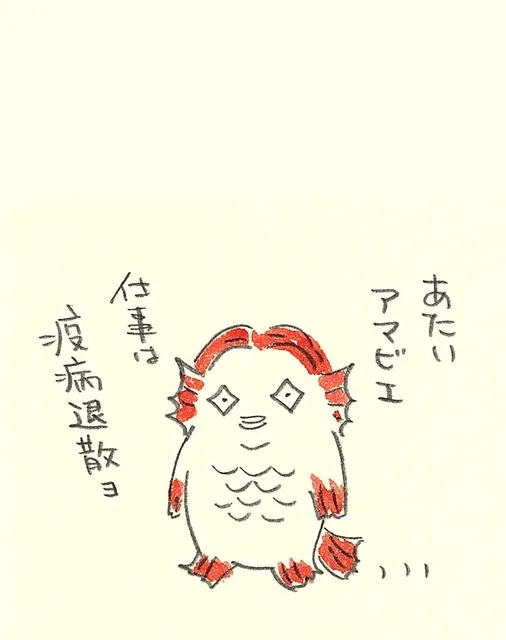 あたい
アマビエ
仕事は
疫病退散ヨ